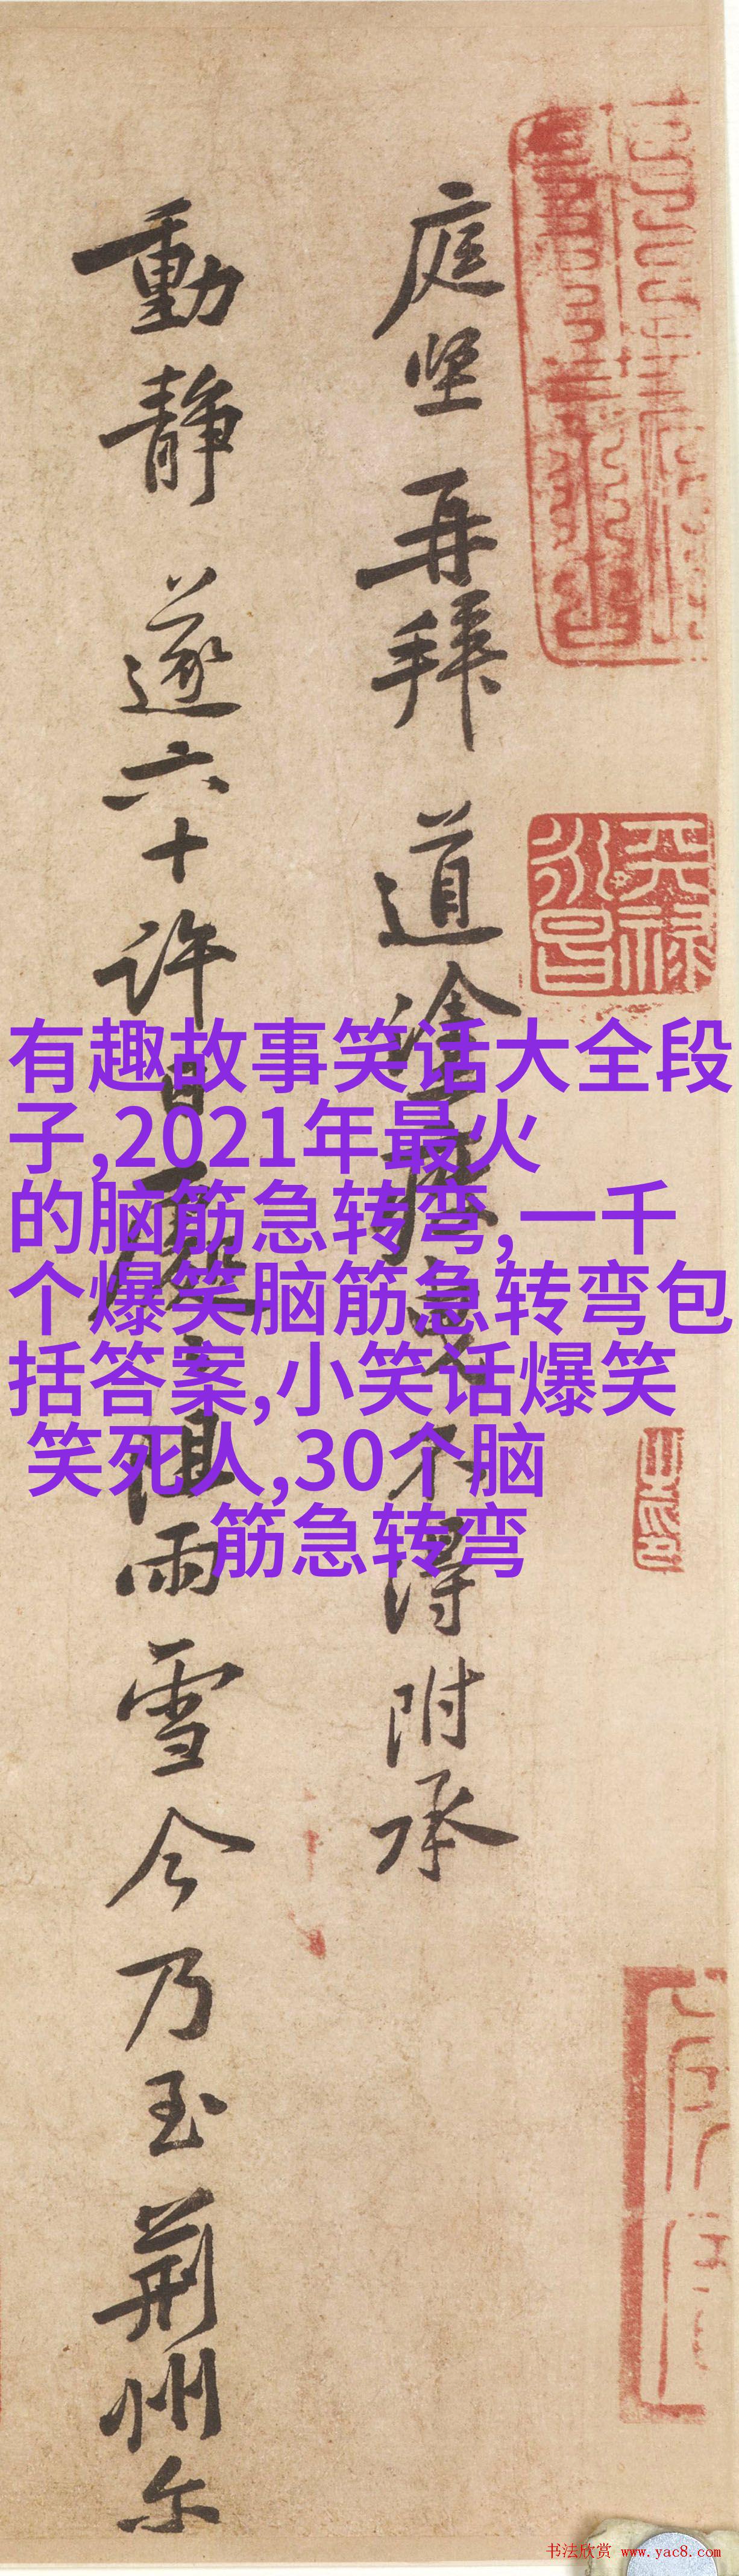 庭坚再拜道塗疲曳不得附承
動静遂六十许日
阻雨雪今乃至荆州尔
天禄
永昌
有趣故事笑话大全段
子,2021年最火
的脑筋急转弯,一千
个爆笑脑筋急转弯包
括答案,小笑话爆笑
笑死人,30个脑
筋急转弯
书法欣赏 www.yac8.com